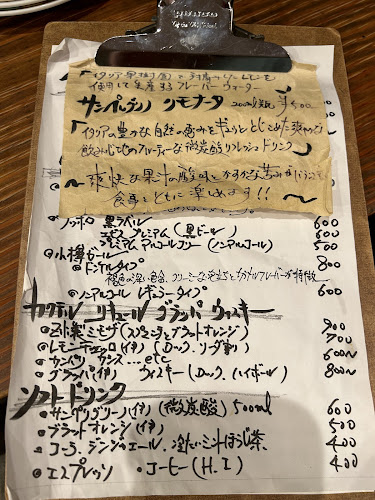 「イタリア
使用して生産するフレーバーウォーター
サンペレグリノ リモナータ 200ml瓶 ¥500
「イタリアの豊かな自然の恵みをギュッととじこめた爽やかな
飲み心地のフルーティーな微炭酸リフレッシュドリンク」
〜爽快な果汁の酸味とかすかな苦みが
食事とともに楽しめます!!〜
サッポロ 黒ラベル 600
エビス プレミアム(黒ビール) 600
プレミアムアルコールフリー(ノンアルコール) 500
◎小樽ビール
◎ドンケルタイプ 800
褐色の深い色合、クリーミーな泡立ちとカラメルフレーバーが特徴
◎ノンアルコール レギュラータイプ 600
カクテル リキュール グランパ ウィスキー
ミモザ(スパークリングブラッドオレンジ) 900
◎レモンチェッロ(伊)(ロック、ソーダ割り) 700
◎カンパリ カシス...etc 600〜
◎グラッパ(伊) ウィスキー(ロック、ハイボール) 800〜
ソフトドリンク
◎サンペレグリーノ(伊)(微炭酸)500ml 600
◎ブラッドオレンジ(伊) 500
◎コーラ、ジンジャエール、冷たいほうじ茶、 400
◎エスプレッソ ◎コーヒー(H.I) 400